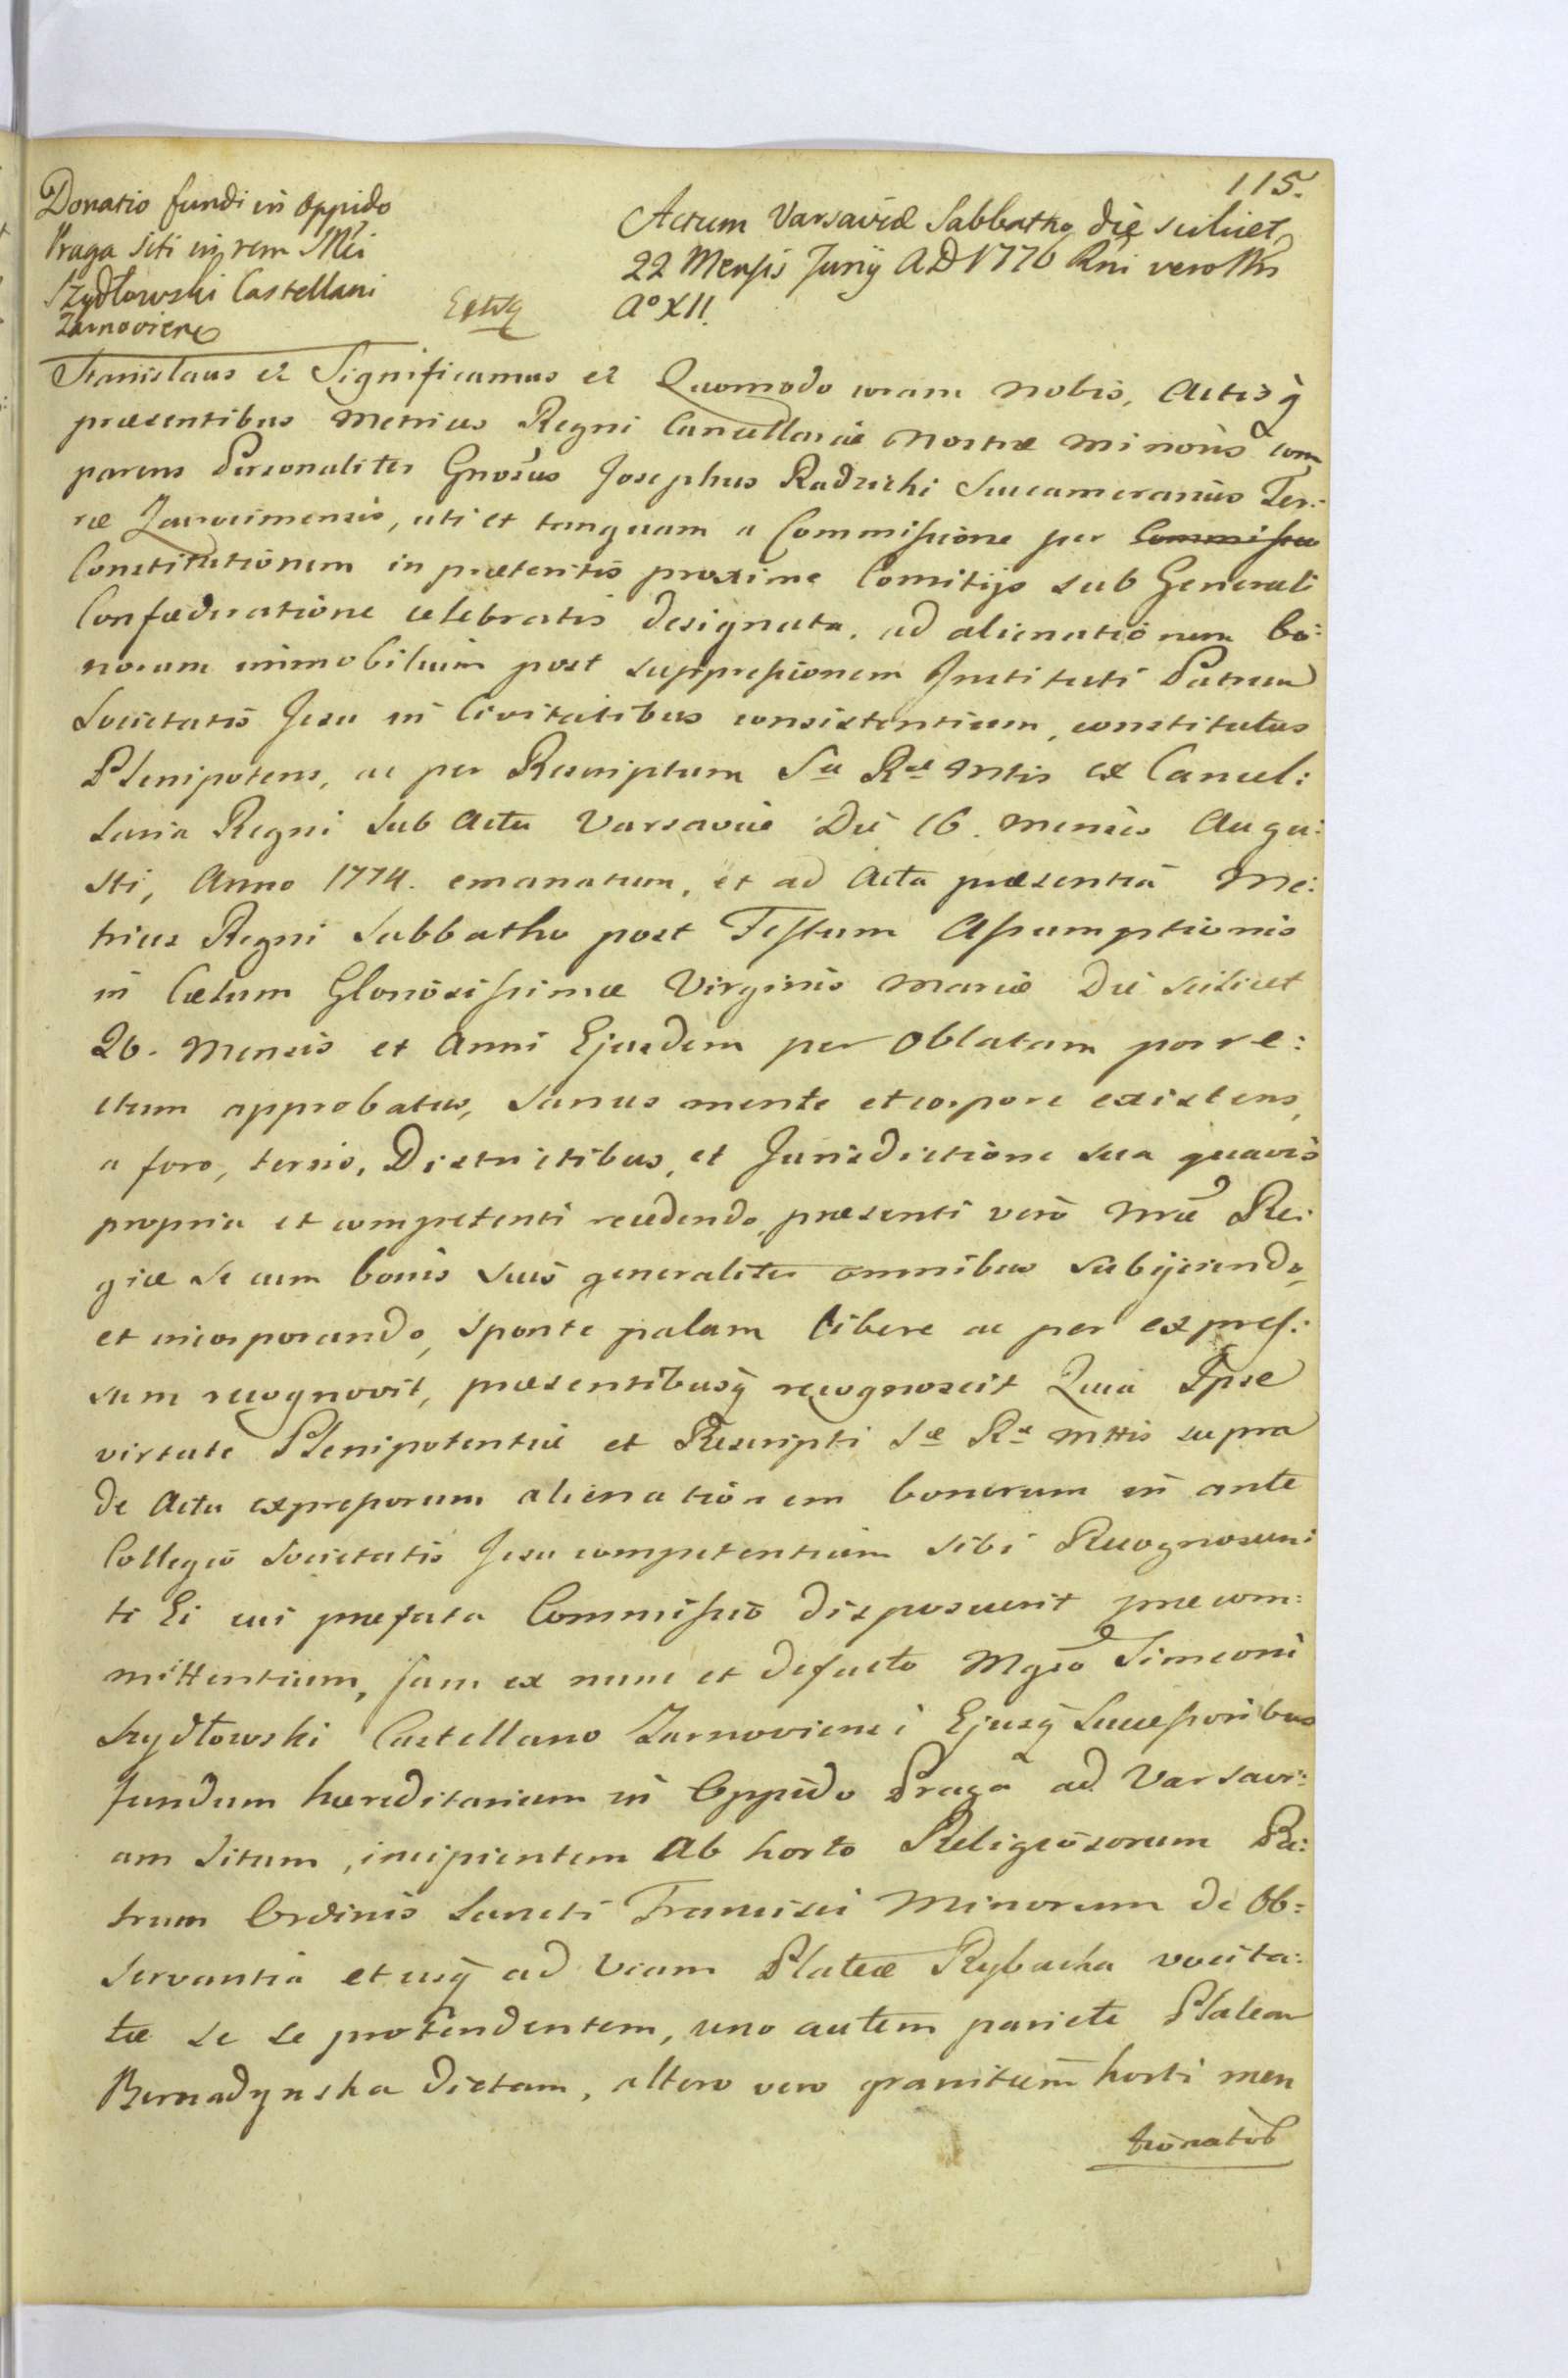 115.
Donatio fundi in Oppido
Praga siti in rem Mci
Szydłowski Castellani
Zarnoviens
Actum Varsaviæ Sabbatho die scilicet
22 Mensis Junij AD 1776 Rni vero Nri
A° XII.
Stanislaus et Significamus et Quomodo coram nobis, Actisq
præsentibus Metrices Regni Cancellariæ Nostræ Minoris com
parens Personaliter Gnosus Josephus Radzicki Succamerarius Ter:
ræ Zawcrimensis, uti et tanquam a Commissione per Commissio
Constitutionem in præteritis proxime Comitijs sub Generali
Confæderatione celebratis designata, ad alienationem bo:
norum immobilium post suppressionem Instituti Patrum
Societatis Jesu in Civitatibus consistentium, constitutus
Plenipotens, ac per Rescriptum Sæ Ræ Mtis ex Cancel:
laria Regni sub Actu Varsaviæ Die 16. mensis Augu:
sti, Anno 1774. emanatum, et ad Acta præsentia Me:
trices Regni Sabbatho post Festum Assumptionis
in Cælum Gloriosissimæ Virginis Mariæ Die scilicet
20. Mensis et Anni Ejusdem per Oblatam porre:
ctum approbatus, sanus mente et corpore existens,
a foro, terris, Districtibus, et Jurisdictione sua quavis
propria et competenti recedendo, præsenti vero Mræ Re:
giæ se cum bonis suis generaliter omnibus subijciendo,
et incorporando, sponte palam libere ac per expres:
sum recognovit, præsentibusq recognoscit Quia Ipse
virtute Plenipotentiæ et Rescripti Sæ Ræ Mttis supra
de Actu expressorum alienationem bonorum in ante
Collegio Societatis Jesu competentium sibi Recognoscen:
ti Ei cui præfata Commissio disposuerit præcom:
mittentium, Jam ex nunc et defacto Mgco Simeoni
Szydłowski Castellano Zarnoviensi Ejusq Successoribus
fundum hæreditarium in Oppido Praga ad Varsavi:
am situm, incipientem Ab horto Religiosorum Pa:
trum Ordinis Sancti Francisci Minorum de Ob:
servantia et usq ad Viam Plateæ Rybacka vocita:
tæ se se protendentem, uno autem pariete Plateam
Bernadynska dictam, altero vero granitiem horti men
tionatob